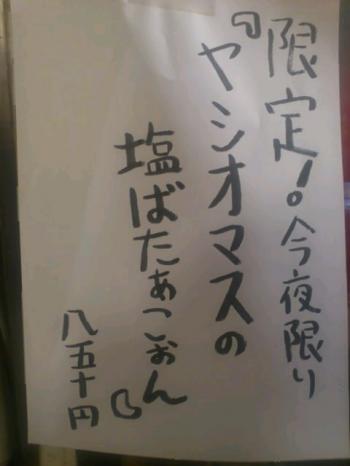 限定!今夜限り
『ヤシオマスの
塩ばたぁこぉん』
八五十円